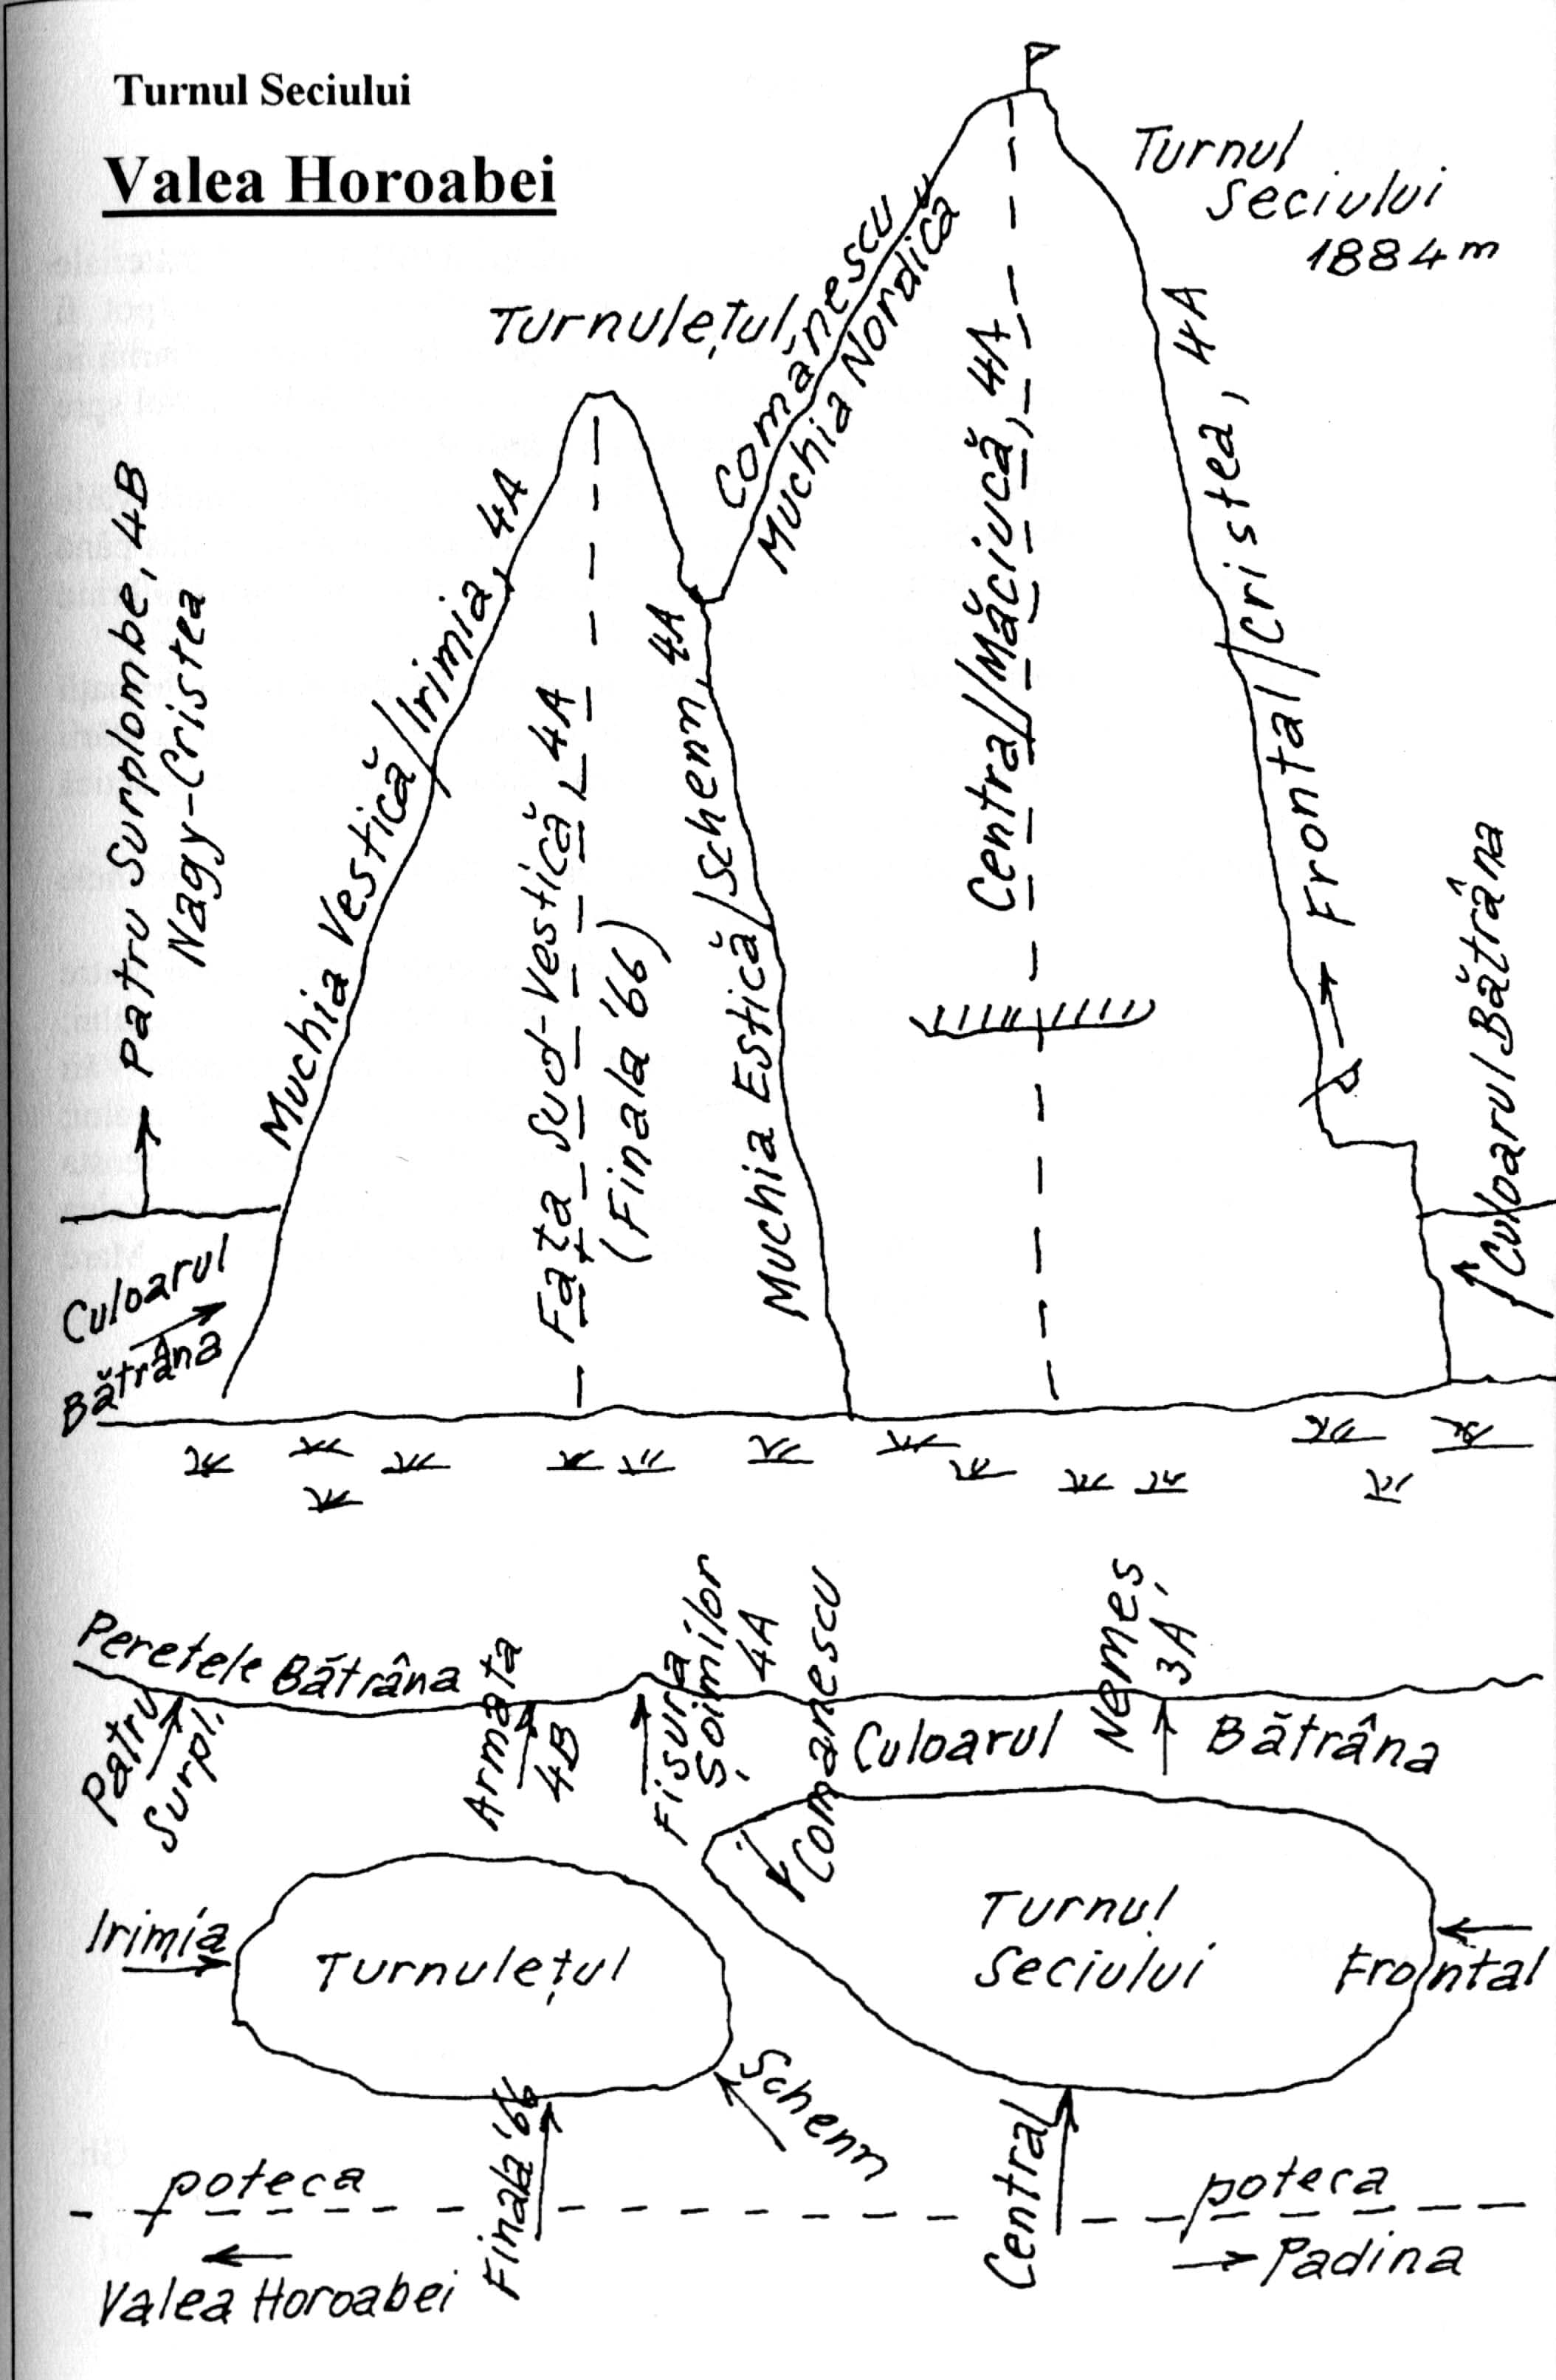 Turnul Seciului
Valea Horoabei
Turnul
Seciului
1884 m
Turnulețul
Comănescu
Muchia Nordică
Patru Surplombe, 4B
Nagy-Cristea
Muchia Vestică/Irimia, 4A
Fața Sud-Vestică, 4A
(Finala '66)
Muchia Estică/Schenn, 4A
Central/Măciucă, 4A
Frontal/Cristea, 4A
Culoarul Bătrâna
Culoarul
Bătrâna
Peretele Bătrâna
Patru
Surpl.
Armata
4B
Fisura
Șoimilor
4A
Comanescu
Culoarul
Nemeș,
3A
Bătrâna
Irimia
Turnulețul
Turnul
Seciului
Frontal
Schenn
Finala '66
Central
poteca
poteca
Valea Horoabei
Padina